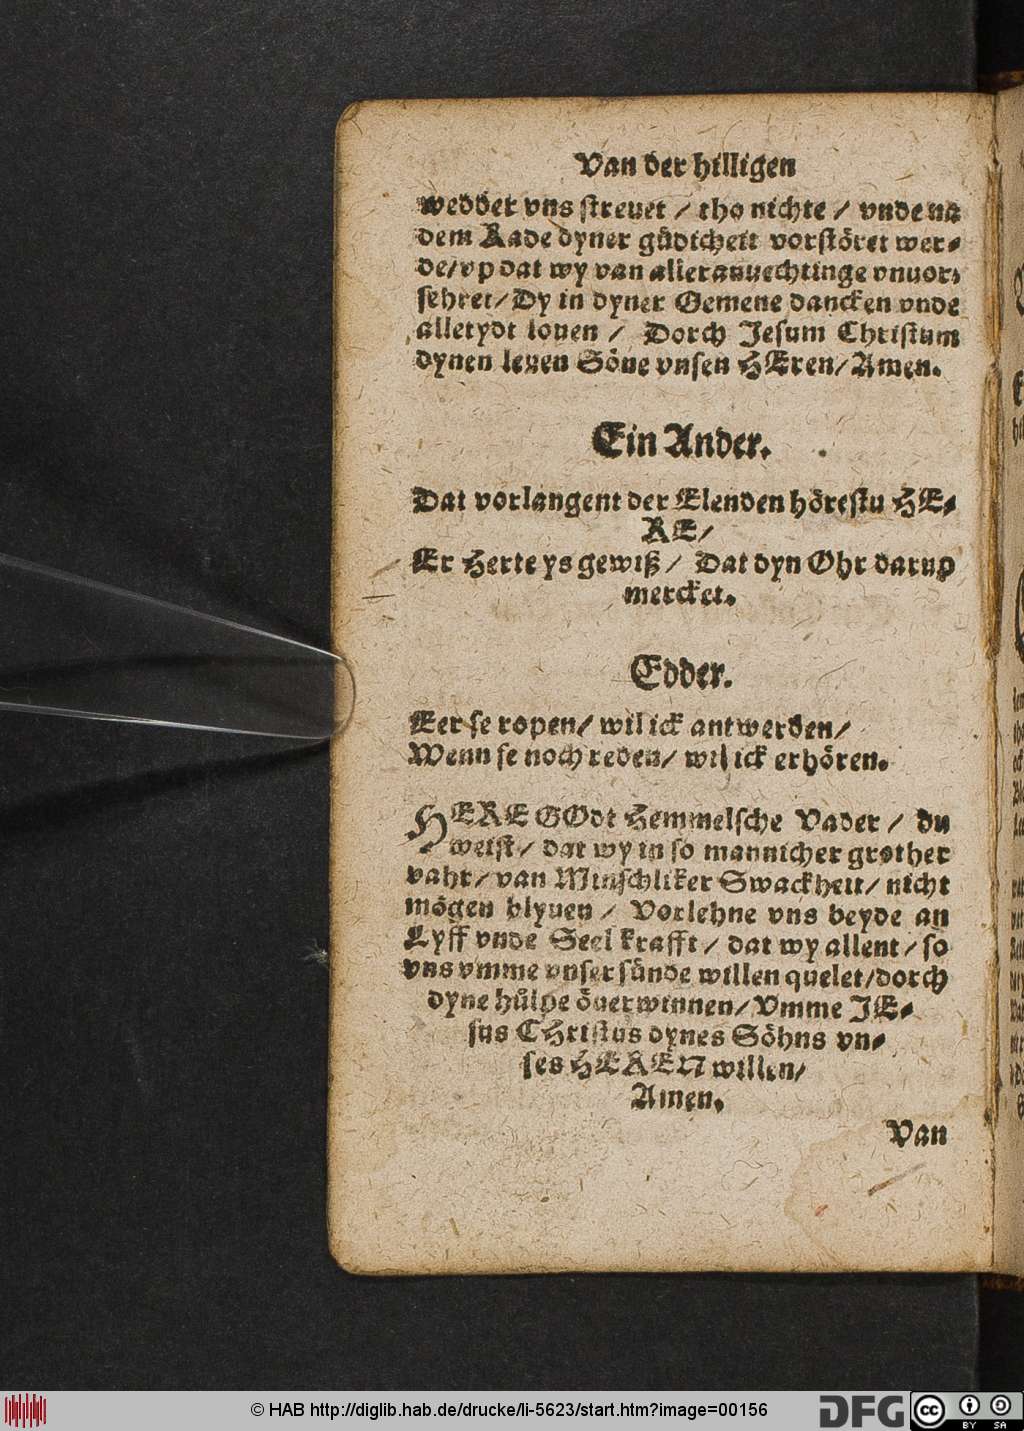 Van der hilligen
wedder vns streuet / tho nichte / vnde na
dem Rade dyner güdicheit vorstöret wer-
de/vp dat wy van aller anuechtinge vnuor-
sehret/Dy in dyner Gemene dancken vnde
alletydt louen / Dorch Jesum Christum
dynen leuen Söne vnsen HEren/Amen.
Ein Ander.
Dat vorlangent der Elenden hörestu HE-
RE/
Er Herte ys gewiß / Dat dyn Ohr darup
mercket.
Edder.
Eer se ropen/ wil ick antwerden/
Wenn se noch reden/ wil ick erhören.
HERE GOdt Hemmelsche Vader / du
weist/ dat wy in so mannicher grother
vahr/van Minschliker Swackheit/nicht
mögen blyuen / Vorlehne vns beyde an
Lyff vnde Seel krafft/ dat wy allent/so
vns vmme vnser sünde willen quelet/dorch
dyne hülpe öuerwinnen/Vmme JE-
sus CHristus dynes Söhns vn-
ses HEREN willen/
Amen.
Van
© HAB http://diglib.hab.de/drucke/li-5623/start.htm?image=00156
DFG
cc
BY SA